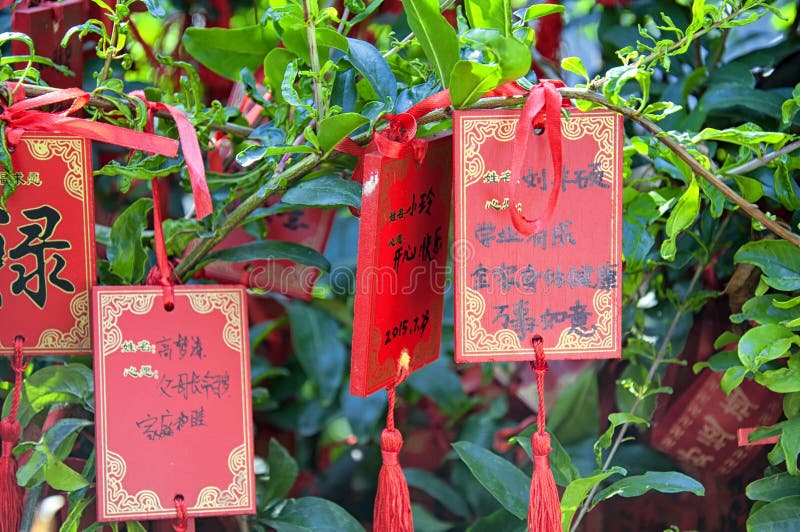 求愿
禄
姓名:
心愿:
父母长命健
家庭和睦
姓名: 小玲
心愿:
开心快乐
2015.7.
姓名: 刘
心愿:
学业有成
全家身体健康
万事如意